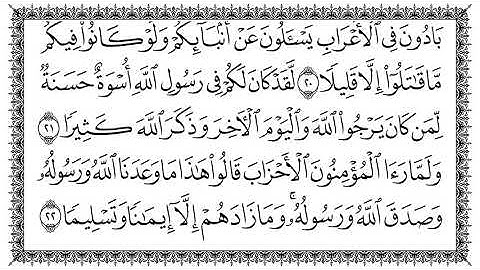 بَادُونَ فِي ٱلْأَعْرَابِ يَسْـَٔلُونَ عَنْ أَنۢبَآئِكُمْ وَلَوْ كَانُوا۟ فِيكُم
مَّا قَٰتَلُوٓا۟ إِلَّا قَلِيلًا ٢٠ لَّقَدْ كَانَ لَكُمْ فِي رَسُولِ ٱللَّهِ أُسْوَةٌ حَسَنَةٌ
لِّمَن كَانَ يَرْجُوا۟ ٱللَّهَ وَٱلْيَوْمَ ٱلْأَخِرَ وَذَكَرَ ٱللَّهَ كَثِيرًا ٢١
وَلَمَّا رَءَا ٱلْمُؤْمِنُونَ ٱلْأَحْزَابَ قَالُوا۟ هَٰذَا مَا وَعَدَنَا ٱللَّهُ وَرَسُولُهُۥ
وَصَدَقَ ٱللَّهُ وَرَسُولُهُۥ ۚ وَمَا زَادَهُمْ إِلَّآ إِيمَٰنًا وَتَسْلِيمًا ٢٢